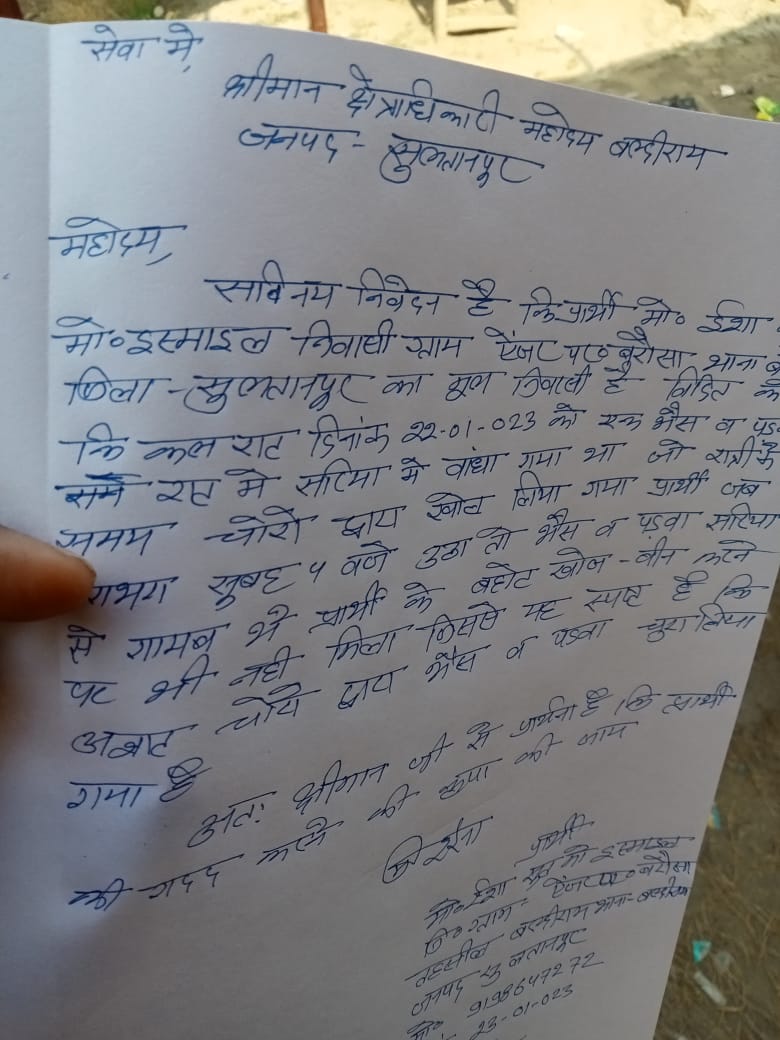 सेवा में,
श्रीमान क्षेत्राधिकारी महोदय बल्दीराय
जनपद - सुलतानपुर
महोदय,
सविनय निवेदन है कि प्रार्थी मो० ईशा
मो० इस्माइल निवासी ग्राम ऐंजर पर० बरौसा थाना
जिला - सुलतानपुर का मूल निवासी है विदित
कि कल रात दिनांक 22-01-023 को एक भैंस व
रात में सरिया में बांधा गया था जो रात्री के
समय चोरो द्वारा खोल लिया गया प्रार्थी जब
सुबह 4 बजे उठा तो भैंस व पड़वा सरिया
से गायब थे प्रार्थी के बहोत खोज-बीन करने
पर भी नही मिला जिससे यह स्पष्ट है कि
चोरो द्वारा भैंस व पड़वा चुरा लिया
गया है
अतः श्रीमान जी से प्रार्थना है कि प्रार्थी
की मदद करने की कृपा की जाय
प्रार्थी
मो० ईशा सुत मो० इस्माइल
नि० ग्राम - ऐंजर प० बरौसा
तहसील बल्दीराय थाना - बल्दीराय
जनपद सुलतानपुर
मो० 9198647272
23-01-023